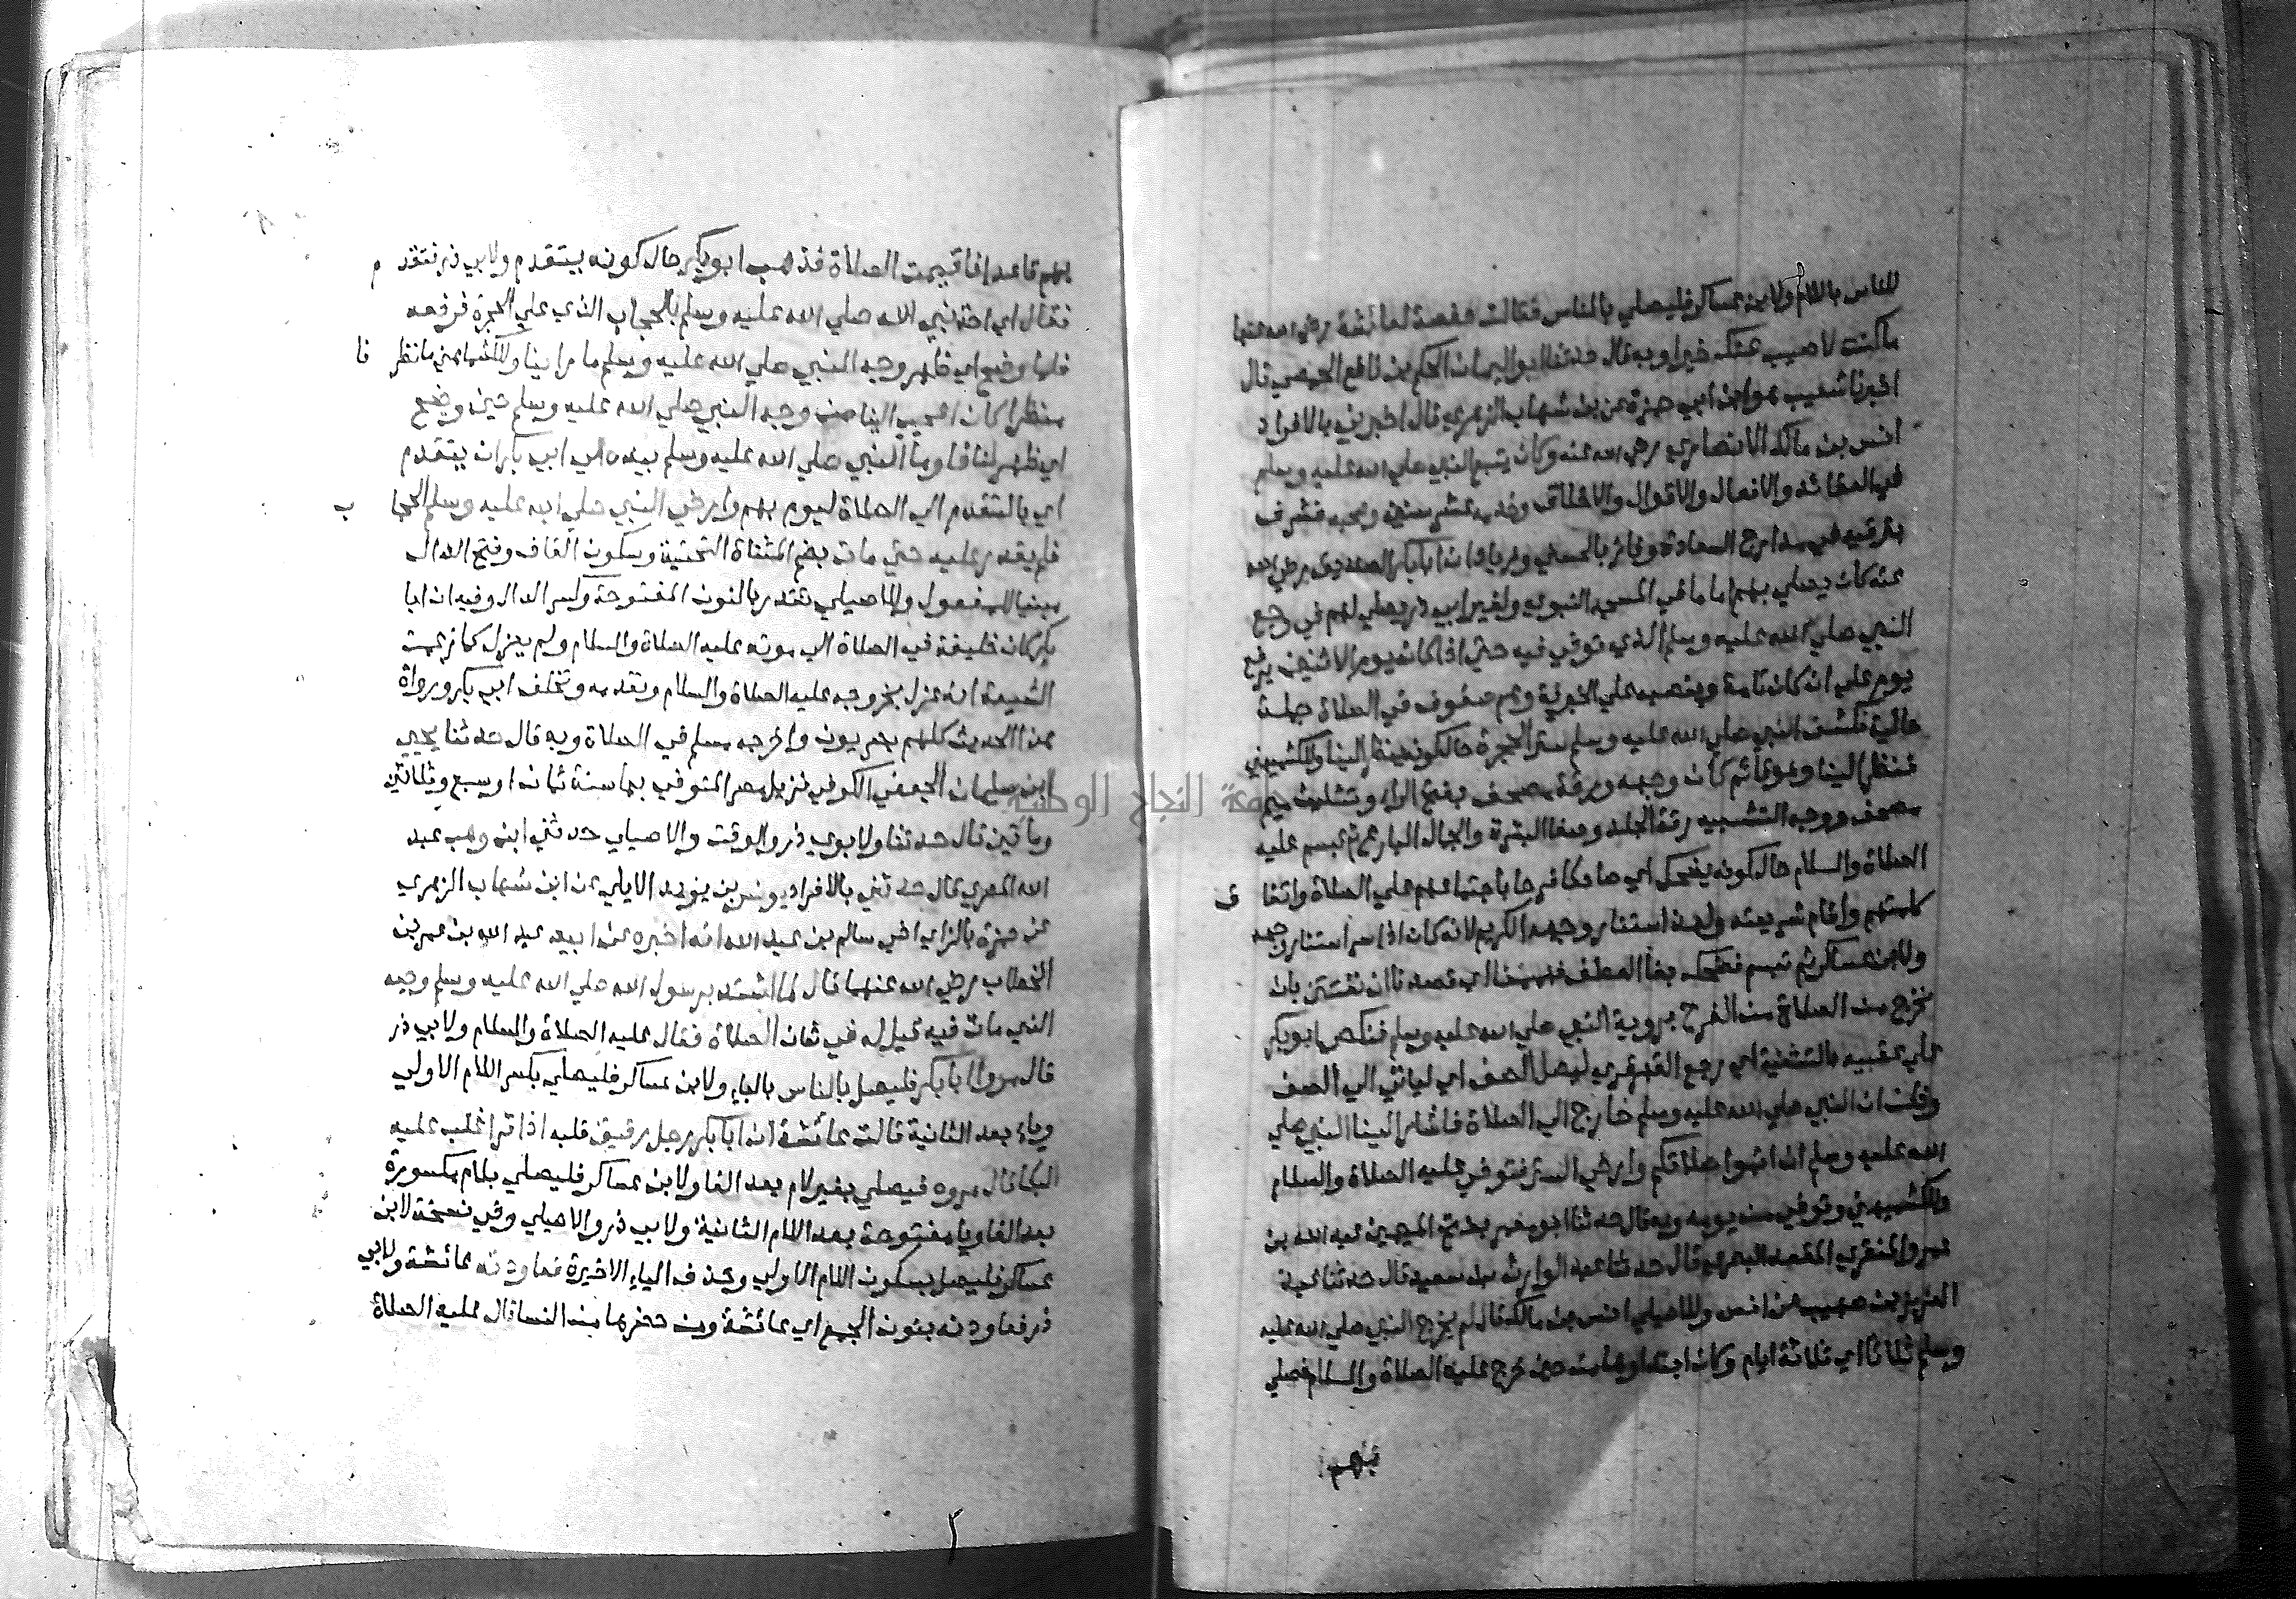 للناس باللام ولابن عساكر فليصلي بالناس فقالت حفصة لعائشة رضي الله عنها
ما كنت لاصيب منك خيرا وبه قال حدثنا ابو اليمان الحكم بن نافع الحمصي قال
اخبرنا شعيب هو ابن ابي حمزة عن بن شهاب الزهري قال اخبرني بالافراد
انس بن مالك الانصاري رضي الله عنه وكان يتبع النبي صلي الله عليه وسلم
في العقائد والافعال والاقوال والاخلاق وخدمه عشر سنين وصحبه فشرف
بترقيه في مدارج السعادة وفاز بالحسني وزيادة ان ابا بكر الصديق رضي الله
عنه كان يصلي بهم اماما في المسجد النبوي ولغير ابي ذر يصلي لهم في وجع
النبي صلي الله عليه وسلم الذي توفي فيه حتي اذا كان يوم الاثنين برفع
يوم علي ان كان تامة وبنصبه علي الخبرية وهم صفوف في الصلاة جملة
حالية فكشف النبي صلي الله عليه وسلم ستر الحجرة حال كونه ينظر الينا وللكشميهني
فنظر الينا وهو قائم كأن وجهه ورقة مصحف بفتح الراء وتثليث ميم
مصحف ووجه التشبيه رقة الجلد وصفا البشرة والجمال البارع ثم تبسم عليه
الصلاة والسلام حال كونه يضحك اي ضاحكا فرحا باجتماعهم علي الصلاة واتفا ق
كلمتهم واقام شريعته ولهذا استنار وجهه الكريم لانه كان اذا سر استنار وجهه
ولابن عساكر ثم تبسم فضحك بفا العطف فهممنا اي قصدنا ان نفتتن بان
نخرج من الصلاة من الفرح بروية النبي صلي الله عليه وسلم فنكص ابو بكر
علي عقبيه بالتثنية اي رجع القهقري ليصل الصف اي لياتي الي الصف
وظن ان النبي صلي الله عليه وسلم خارج الي الصلاة فاشار الينا النبي صلي
الله عليه وسلم ان اتموا صلاتكم وارخي الستر فتوفي عليه الصلاة والسلام
وللكشميهني وتوفي من يومه وبه قال حدثنا ابو معمر بفتح الميمين عبد الله بن
عمرو المنقري المقعد البصري قال حدثنا عبد الوارث بن سعيد قال حدثنا عبد
العزيز بن صهيب عن انس وللاصيلي انس بن مالك قال لم يخرج النبي صلي الله عليه
وسلم ثلاثا اي ثلاثة ايام وكان ابتداوها من حين خرج عليه الصلاة والسلام فصلي
بهم
بهم قاعدا فاقيمت الصلاة فذهب ابو بكر حال كونه يتقدم ولابي ذر فتقد م
فقال اي اخذ نبي الله صلي الله عليه وسلم بالحجاب الذي علي الحجرة فرفعه
فلما وضح اي ظهر وجه النبي صلي الله عليه وسلم ما راينا وللكشميهني ما نظر نا
منظرا كان اعجب الينا من وجه النبي صلي الله عليه وسلم حين وضح
اي ظهر لنا فاومأ النبي صلي الله عليه وسلم بيده الي ابي بكر ان يتقدم
اي بالتقدم الي الصلاة ليوم بهم وارخي النبي صلي الله عليه وسلم الحجا ب
فلم يقدر عليه حتي مات بضم المثناة التحتية وسكون القاف وفتح الدال
مبنيا للمفعول وللاصيلي نقدر بالنون المفتوحة وكسر الدال وفيه ان ابا
بكر كان خليفة في الصلاة الي موته عليه الصلاة والسلام ولم يعزل كما زعمت
الشيعة انه عزل بخروجه عليه الصلاة والسلام وتقدمه وتخلف ابي بكر ورواة
هذا الحديث كلهم بصريون واخرجه مسلم في الصلاة وبه قال حدثنا يحيي
ابن سليمان الجعفي الكوفي نزيل مصر المتوفي بها سنة ثمان او سبع وثلاثين
وماتين قال حدثنا ولابوي ذر والوقت والاصيلي حدثني ابن وهب عبد
الله المصري قال حدثني بالافراد يونس بن يزيد الايلي عن ابن شهاب الزهري
عن حمزة بالزاي اخي سالم بن عبد الله انه اخبره عن ابيه عبد الله بن عمر بن
الخطاب رضي الله عنهما قال لما اشتد برسول الله صلي الله عليه وسلم وجعه
الذي مات فيه قيل له في شان الصلاة فقال عليه الصلاة والسلام ولابي ذر
قال مروا ابا بكر فليصل بالناس بالباء ولابن عساكر فليصلي بكسر اللام الاولي
وياء بعد الثانية قالت عائشة ان ابا بكر رجل رقيق قلبه اذا قرا غلب عليه
البكا قال مروه فيصلي بغير لام بعد الفا ولابن عساكر فليصلي بلام مكسورة
بعد الفا وياء مفتوحة بعد اللام الثانية ولابي ذر والاصيلي وفي نسخة لابن
عساكر فليصل بسكون اللام الاولي وحذف الياء الاخيرة فعاودته عائشة ولابي
ذر فعاودنه بنون الجمع اي عائشة ومن حضرها من النسا قال عليه الصلاة
جامعة النجاح الوطنية